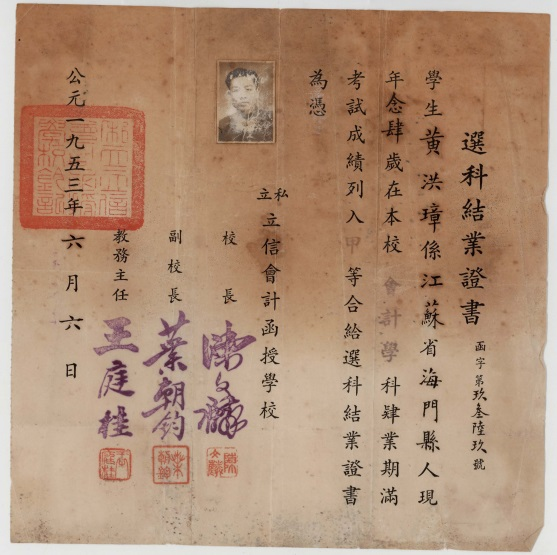 選科結業證書
函字第玖叁陸玖號
學生黃洪璋係江蘇省海門縣人現
年念肆歲在本校會計學科肄業期滿
考試成績列入甲等合給選科結業證書
為憑
私立立信會計函授學校
校長
副校長 葉朝鈞
教務主任 王庭桂
公元一九五三年六月六日